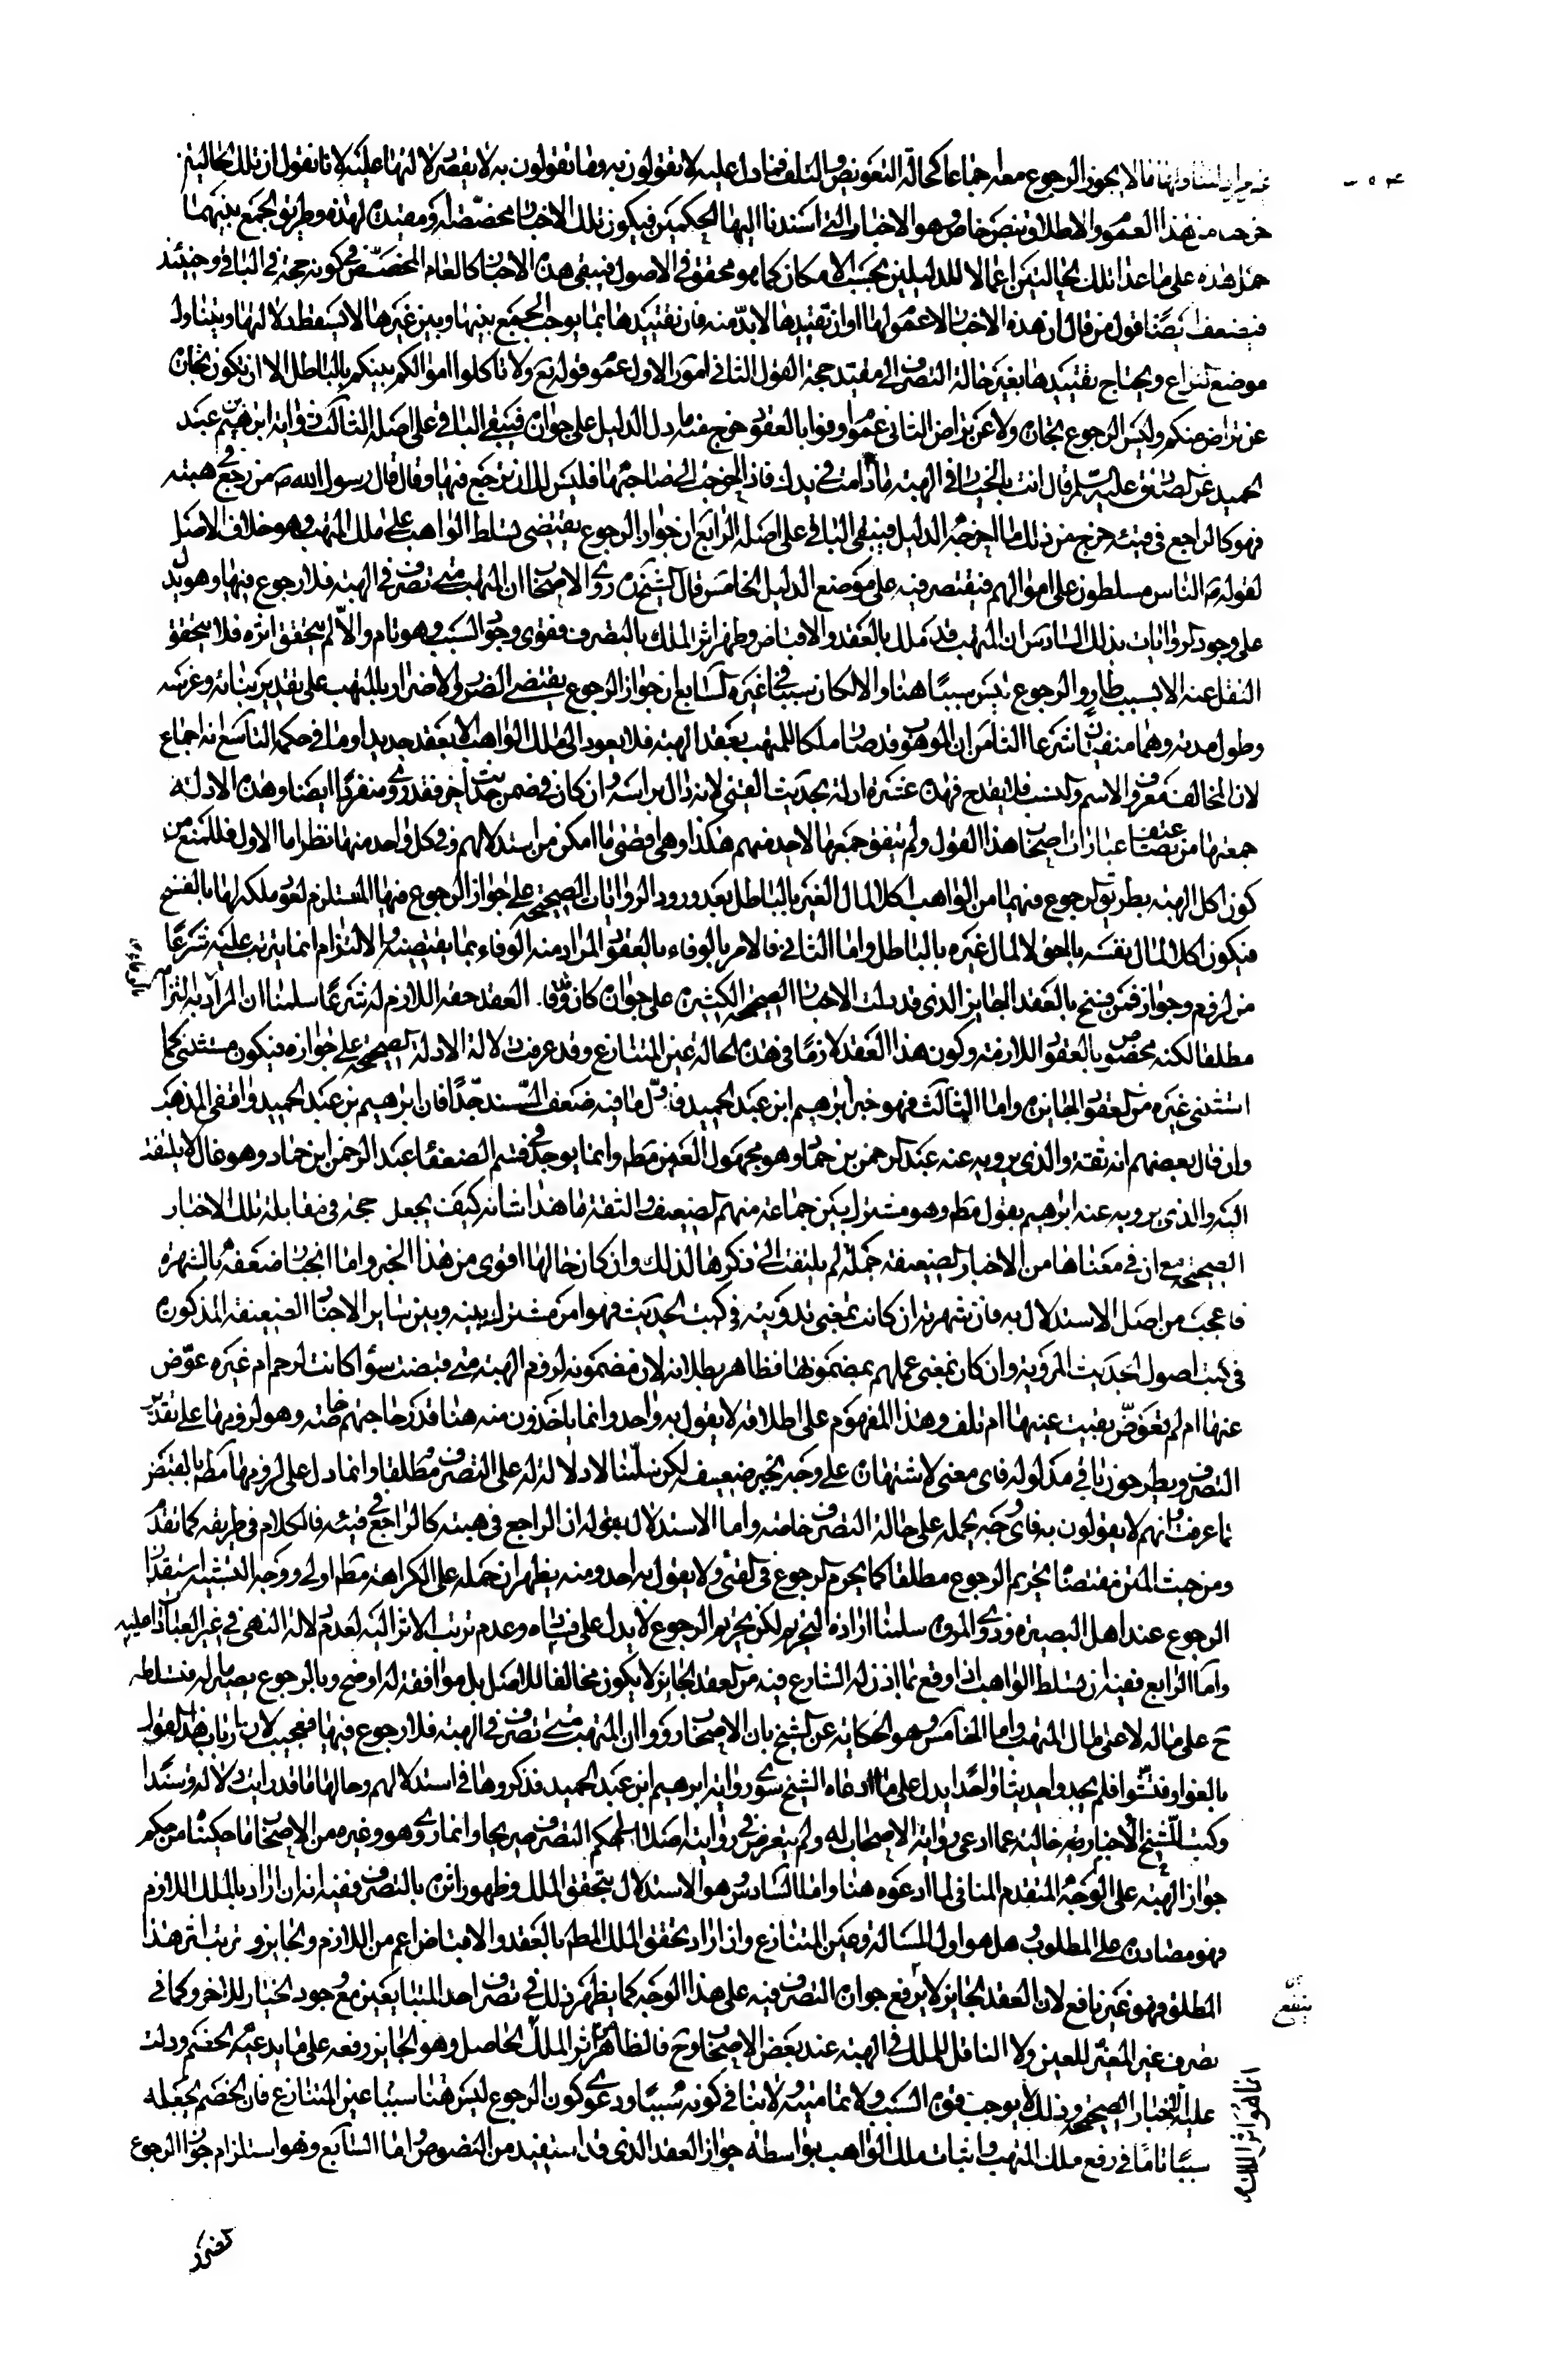 ما لا يجوز الرجوع معه جماعا كحالة التعويض والتلف فما دل عليه لا تقولون به وما تقولون به لا يقصر دلالتها عليه لانا نقول ان تلك الحالتين
خرجت من هذا العموم والاطلاق بنص خاص وهو الاخبار التي اسندنا اليها الحكمين فيكون تلك الاخبار مخصصة او مقيدة لهذه وطريق الجمع بينهما
حمل هذه على ما عدا تلك الحالتين اعمالا للدليلين بحسب الامكان كما هو محقق في الاصول فيبقى هذه الاخبار كالعام المخصص في كونه حجة في الباقي وحينئذ
فيضعف ايضا قول من قال ان هذه الاخبار لا عموم لها او ان تقييدها لا بد منه فان تقييدها بما يوجب الجمع بينها وبين غيرها لا يسقط دلالتها ويتناول
موضع النزاع ويحتاج تقييدها بغير حالة التصرف الى مقيد حجة القول الثاني امور الاول عموم قوله تع ولا تاكلوا اموالكم بينكم بالباطل الا ان تكون تجارة
عن تراض منكم وليس الرجوع تجارة ولا عن تراض الثاني عموم اوفوا بالعقود خرج منه ما دل الدليل على جوازه فيبقى الباقي على اصله الثالث رواية ابرهيم بن عبد
الحميد عن الصادق عليه السلم قال انت بالخيار في الهبة ما دامت في يدك فاذا خرجت الى صاحبها فليس لك ان ترجع فيها وقال قال رسول الله ص من رجع في هبته
فهو كالراجع في قيئه خرج من ذلك ما اخرجه الدليل فيبقى الباقي على اصله الرابع ان جواز الرجوع يقتضي تسلط الواهب على ملك المتهب وهو خلاف الاصل
لقوله ص الناس مسلطون على اموالهم فيقتصر فيه على موضع الدليل الخامس قال الشيخ ره روى الاصحاب ان المتهب متى تصرف في الهبة فلا رجوع فيها وهو يدل
على وجود الروايات بذلك السادس ان المتهب قد ملك بالعقد والاقباض وظهر اثر الملك بالتصرف فقوى وجود السبب وهو تام والا لم يتحقق اثره فلا يتحقق
النقل عنه الا بسبب طار والرجوع ليس سببا هنا والا لكان سببا في غيره السابع ان جواز الرجوع يقتضي الضرر والاضرار بالمتهب على تقدير بنائه وغرسه
وطول مدته وهما منفيان شرعا الثامن ان الموهوب قد صار ملكا للمتهب بعقد الهبة فلا يعود الى ملك الواهب الا بعقد جديد او ما في حكمه التاسع انه اجماع
لان المخالف معروف الاسم والنسب فلا يقدح فهذه عشرة ادلة بحديث القيئ لانه دال براسه وان كان في ضمن حديث اخر فقد روى منفردا ايضا وهذه الادلة
جمعتها من تضاعيف عبارات اصحاب هذا القول ولم يتفق جمعها لاحد منهم هكذا وهي اقصى ما امكن من استدلالهم وفي كل واحد منها نظر اما الاول فللمنع من
كون اكل الهبة بطريق الرجوع فيها من الواهب اكل المال الغير بالباطل بعد ورود الروايات الصحيحة على جواز الرجوع فيها المستلزم لعود ملكه لها بالفسخ
فيكون اكل المال نفسه بالحق لا لمال غيره بالباطل واما الثاني فالامر بالوفاء بالعقود المراد منه الوفاء بما يقتضيه والالتزام بما يترتب عليه شرعا
من لزوم وجواز فمن فسخ بالعقد الجايز الذي قد دلت الاخبار الصحيحة الكثيرة على جوازه كان وفا العقد حقه اللازم له شرعا سلمنا ان المراد به التزامه
مطلقا لكنه مخصوص بالعقود اللازمة وكون هذا العقد لازما في هذه الحالة عين المتنازع وقد عرفت دلالة الادلة الصحيحة على جوازه فيكون مستثنى كما
استثنى غيره من العقود الجايزة واما الثالث فهو خبر ابرهيم ابن عبد الحميد فاول ما فيه ضعف السند جدا فان ابرهيم بن عبد الحميد واقفي المذهب
وان قال بعضهم انه ثقة والذي يرويه عنه عبد الرحمن بن حماد وهو مجهول العين مطم وانما يوجد في قسم الضعفاء عبد الرحمن ابن حماد وهو غال لا يلتفت
اليه والذي يرويه عنه ابرهيم يقول مطم وهو مشترك بين جماعة منهم الضعيف والثقة ما هذا شانه كيف يجعل حجة في مقابلة تلك الاخبار
الصحيحة مع ان في معناها من الاخبار الضعيفة جملة لم يلتفت الى ذكرها لذلك وان كان حالها اقوى من هذا الخبر واما انجبار ضعفه بالشهرة
فاعجب من اصل الاستدلال به فان شهرته ان كانت بمعنى تدوينه في كتب الحديث فهو امر مشترك بينه وبين ساير الاخبار الضعيفة المذكورة
في كتب اصول الحديث المروية وان كان بمعنى عملهم بمضمونها فظاهر بطلانه لان مضمونه لزوم الهبة متى قبضت سواء كانت لرحم ام غيره عوض
عنها ام لم يعوض بقيت عينها ام تلف وهذا المفهوم على اطلاقه لا يقول به واحد وانما ياخذون منه هنا قدر حاجتهم خاصة وهو لزومها على تقدير
التصرف ويطرحون باقي مدلوله فاي معنى لاشتهاره على وجه يجبر ضعيف لكن سلمنا لا دلالة له على التصرف مطلقا وانما دل على لزومها مطم بالقبض
ما عرفت وانهم لا يقولون به فاي وجه يحمله على حالة التصرف خاصة واما الاستدلال بقوله ان الراجع في هبته كالراجع في قيئه فالكلام في طريقه كما تقدم
ومن حيث المتن فمقتضاه تحريم الرجوع مطلقا كما يحرم الرجوع في القئ ولا يقول به احد ومنه يظهر ان حمله على الكراهة مطم اولى ووجه التشبيه استقذار
الرجوع عند اهل البصيرة وذوي المروة سلمنا ارادة التحريم لكن تحريم الرجوع لا يدل على فساده وعدم ترتب الاثر اليه لعدم دلالة النهي في غير العبادات عليه
واما الرابع ففيه ان تسلط الواهب اذا وقع بما اذن له الشارع فيه من العقد الجايز لا يكون مخالفا للاصل بل موافقته له اوضح وبالرجوع يصير المال له فتسلطه
ح على ماله لا على مال المتهب واما الخامس وهو الحكاية عن الشيخ بان الاصحاب رووا ان المتهب متى تصرف في الهبة فلا رجوع فيها فعجيب لان ارباب هذا القول
بالغوا وفتشوا فلم يجدوا حديثا واحدا يدل على ما ادعاه الشيخ سوى رواية ابرهيم ابن عبد الحميد فذكروها في استدلالهم وحالها ما قد رايت دلالة وسندا
وكتب الشيخ الاخبارية خالية عما ادعى رواية الاصحاب له ولم يتعرض في رواية اصلا لحكم التصرف صريحا وانما روى هو وغيره من الاصحاب ما حكيناه من حكم
جواز الهبة على الوجه المتقدم المنافي لما ادعوه هنا واما السادس وهو الاستدلال بتحقق الملك وظهور اثره بالتصرف ففيه انه ان اراد بالملك الملك اللازم
فهو مصادرة على المطلوب هل هو اول المسالة وعين المتنازع وان اراد تحقق الملك المطم بالعقد والاقباض اعم من اللازم والجايز وترتب اثر هذا
المطلق فهو غير نافع لان العقد الجايز لا يرفع جواز التصرف فيه على هذا الوجه كما يظهر ذلك في تصرف احد المتبايعين مع وجود الخيار للاخر وكما في
تصرف غير المغير للعين ولا الناقل للملك في الهبة عند بعض الاصحاب وح فالظاهر اثر الملك الحاصل وهو الجايز رفعه على ما يدعيه الخصم ودلت
عليه الاخبار الصحيحة وذلك لا يوجب قوة السبب ولا تماميته ولا ينافي كونه سببا ودعوى كون الرجوع ليس هنا سببا عين المتنازع فان الخصم يجعله
سببا تاما في رفع ملك المتهب واثبات ملك الواهب بواسطة جواز العقد الذي قد استفيد من النصوص واما السابع وهو استلزام جواز الرجوع